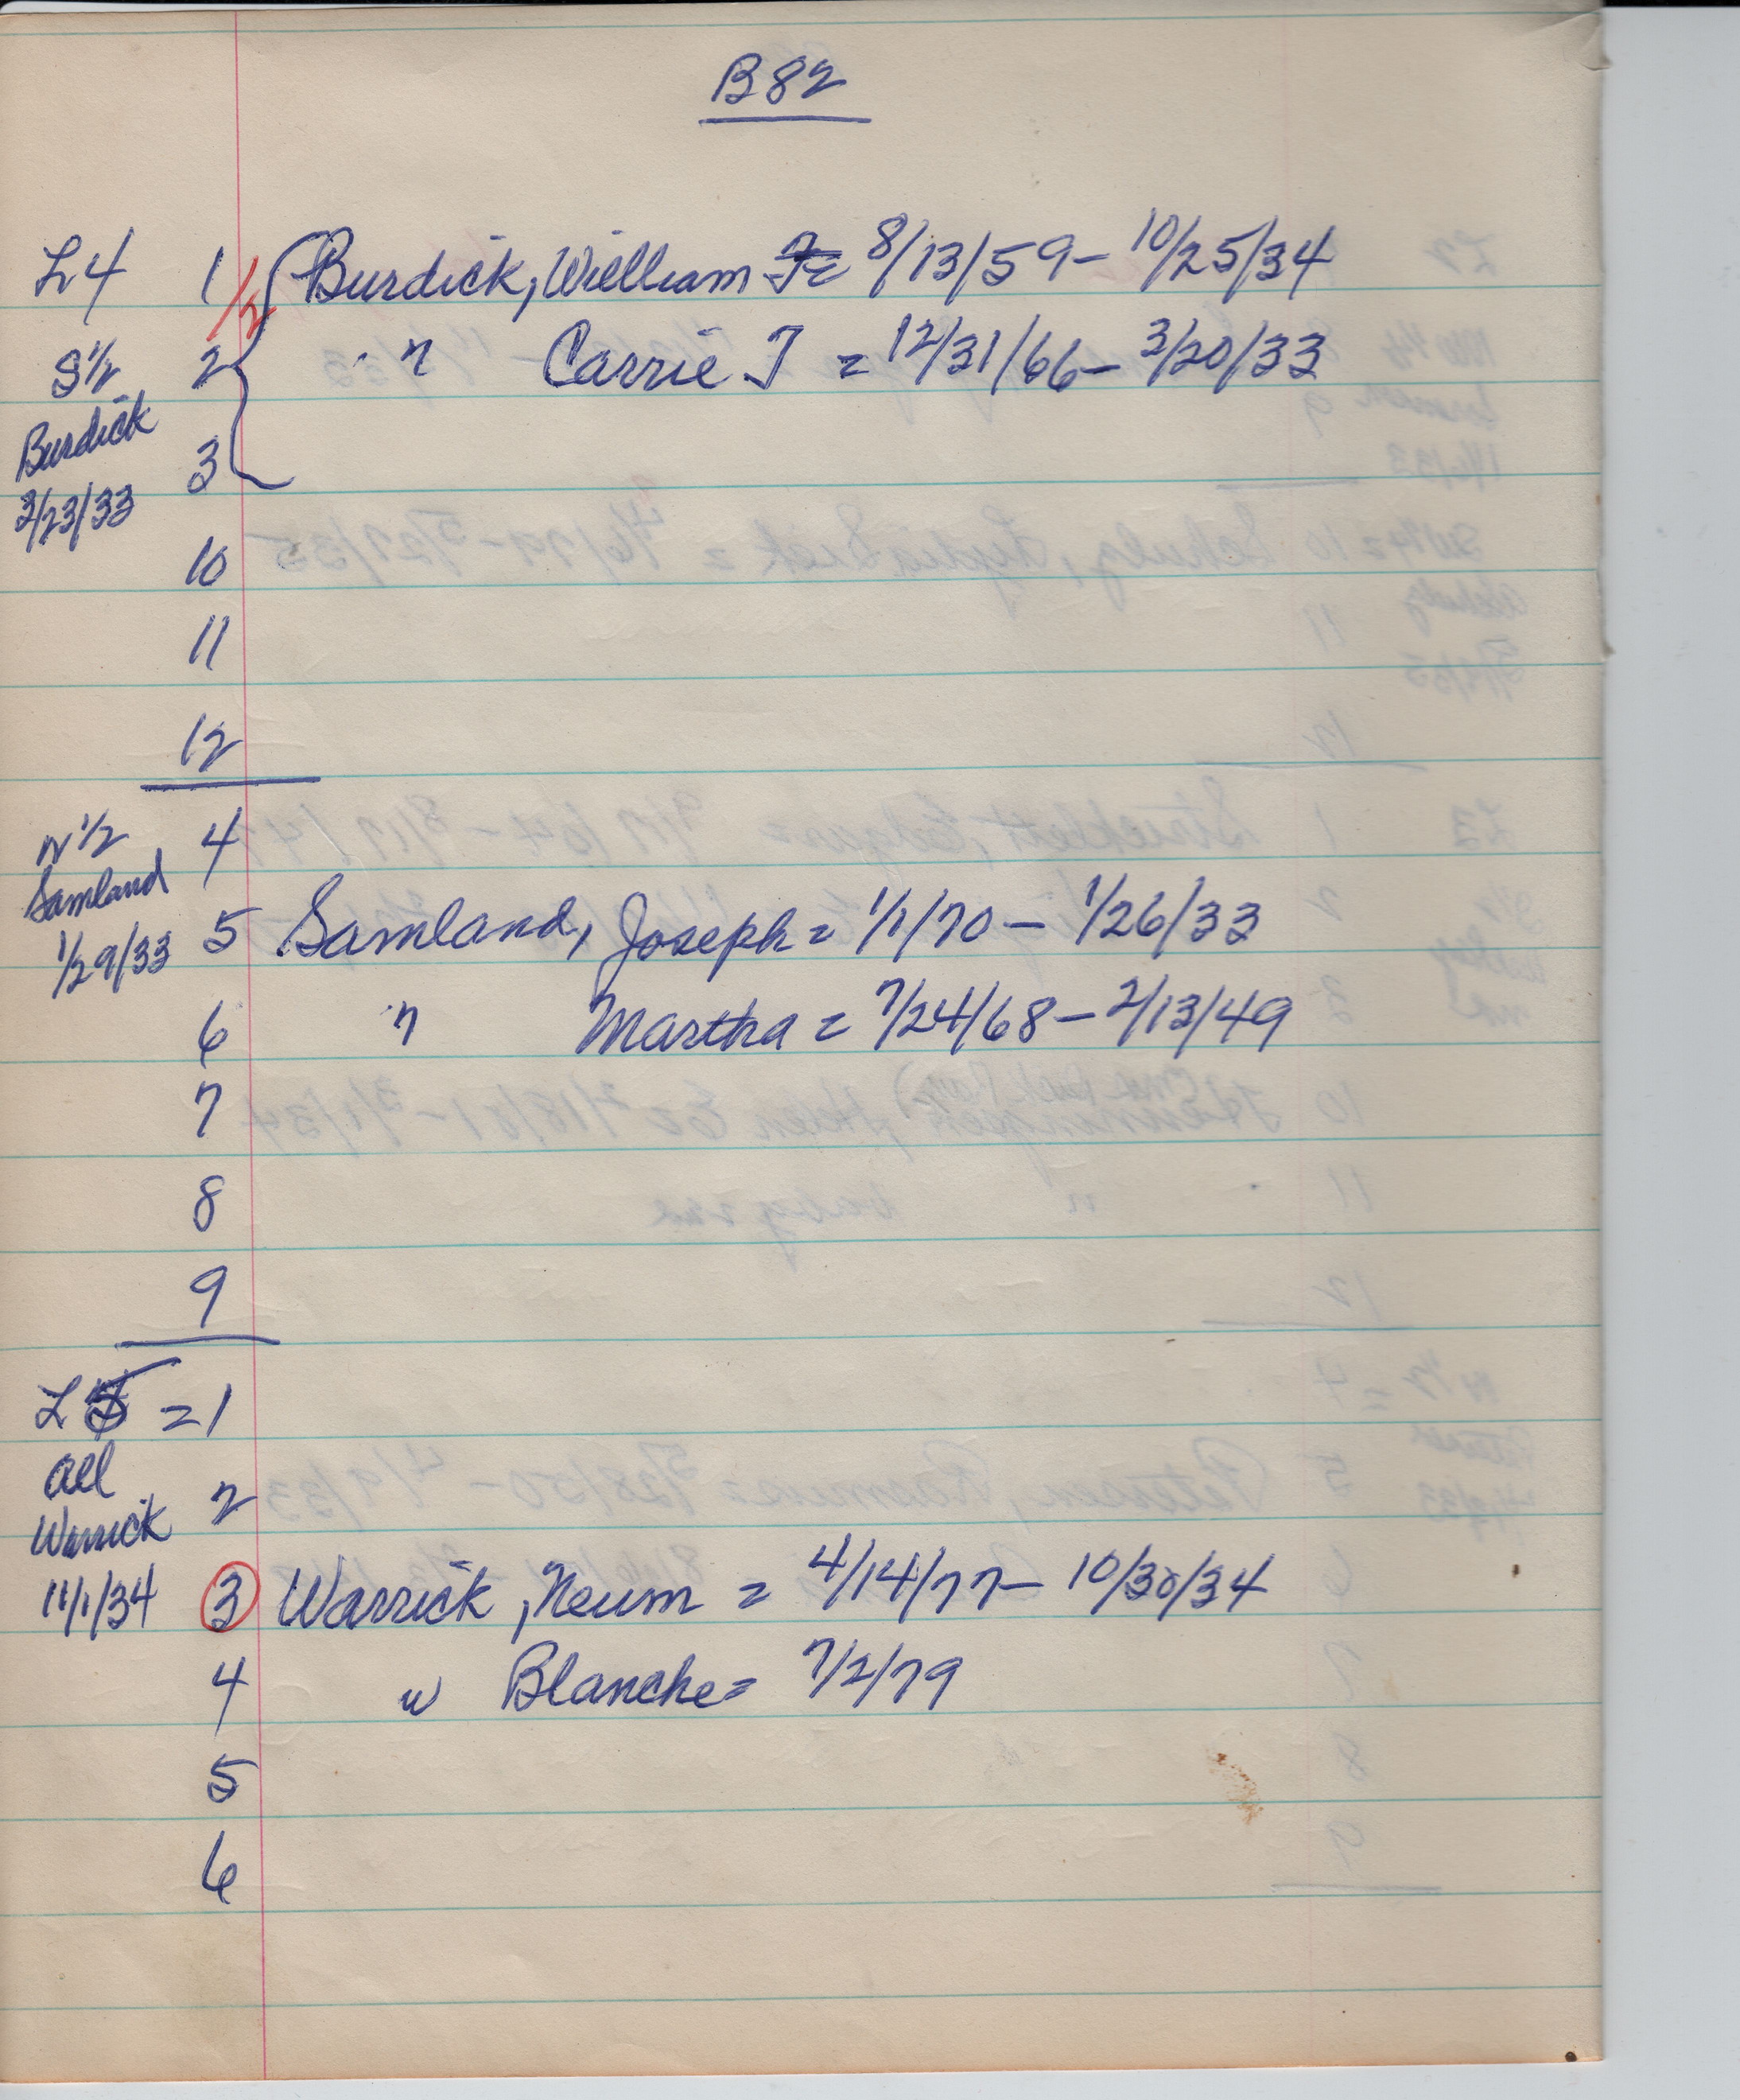 B82
L4 1 1/2 Burdick, William F = 8/13/59 - 10/25/34
S 1/2 2 " Carrie J = 12/31/66 - 3/20/33
Burdick
3
3/23/33
10
11
12
N 1/2 4
Samland
1/29/33 5 Samland, Joseph = 1/1/70 - 1/26/33
6 " Martha = 7/24/68 - 2/13/49
7
8
9
L5 = 1
all
2
Warrick
11/1/34 3 Warrick, Neum = 4/14/77 - 10/30/34
4 " Blanche = 7/2/79
5
6